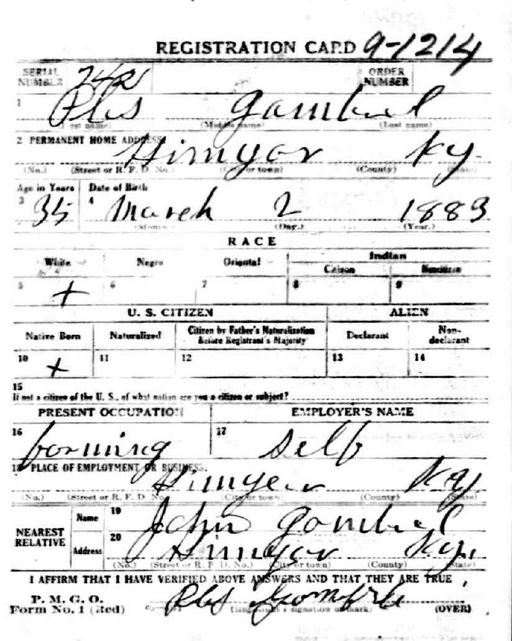 REGISTRATION CARD 9-1214
SERIAL NUMBER 742 ORDER NUMBER
1 Pbs Gambrel
(First name) (Middle name) (Last name)
2 PERMANENT HOME ADDRESS: Himyar Ky.
(No.) (Street or R. F. D. No.) (City or town) (County) (State)
Age in Years Date of Birth
3 35 4 March 2 1883
(Month.) (Day.) (Year.)
RACE
White Negro Oriental Indian
Citizen Noncitizen
5 + 6 7 8 9
U. S. CITIZEN ALIEN
Native Born Naturalized Citizen by Father's Naturalization Before Registrant's Majority Declarant Non-declarant
10 + 11 12 13 14
15
If not a citizen of the U. S., of what nation are you a citizen or subject?
PRESENT OCCUPATION EMPLOYER'S NAME
16 forming 17 self
18 PLACE OF EMPLOYMENT OR BUSINESS: Himyear Ky.
(No.) (Street or R. F. D. No.) (City or town) (County) (State)
NEAREST RELATIVE Name 19 John Gambrel
Address 20 Himyar Ky.
(No.) (Street or R. F. D. No.) (City or town) (County) (State)
I AFFIRM THAT I HAVE VERIFIED ABOVE ANSWERS AND THAT THEY ARE TRUE
P. M. G. O.
Form No. 1 (Red) Pbs (Registrant's signature or mark) (OVER)